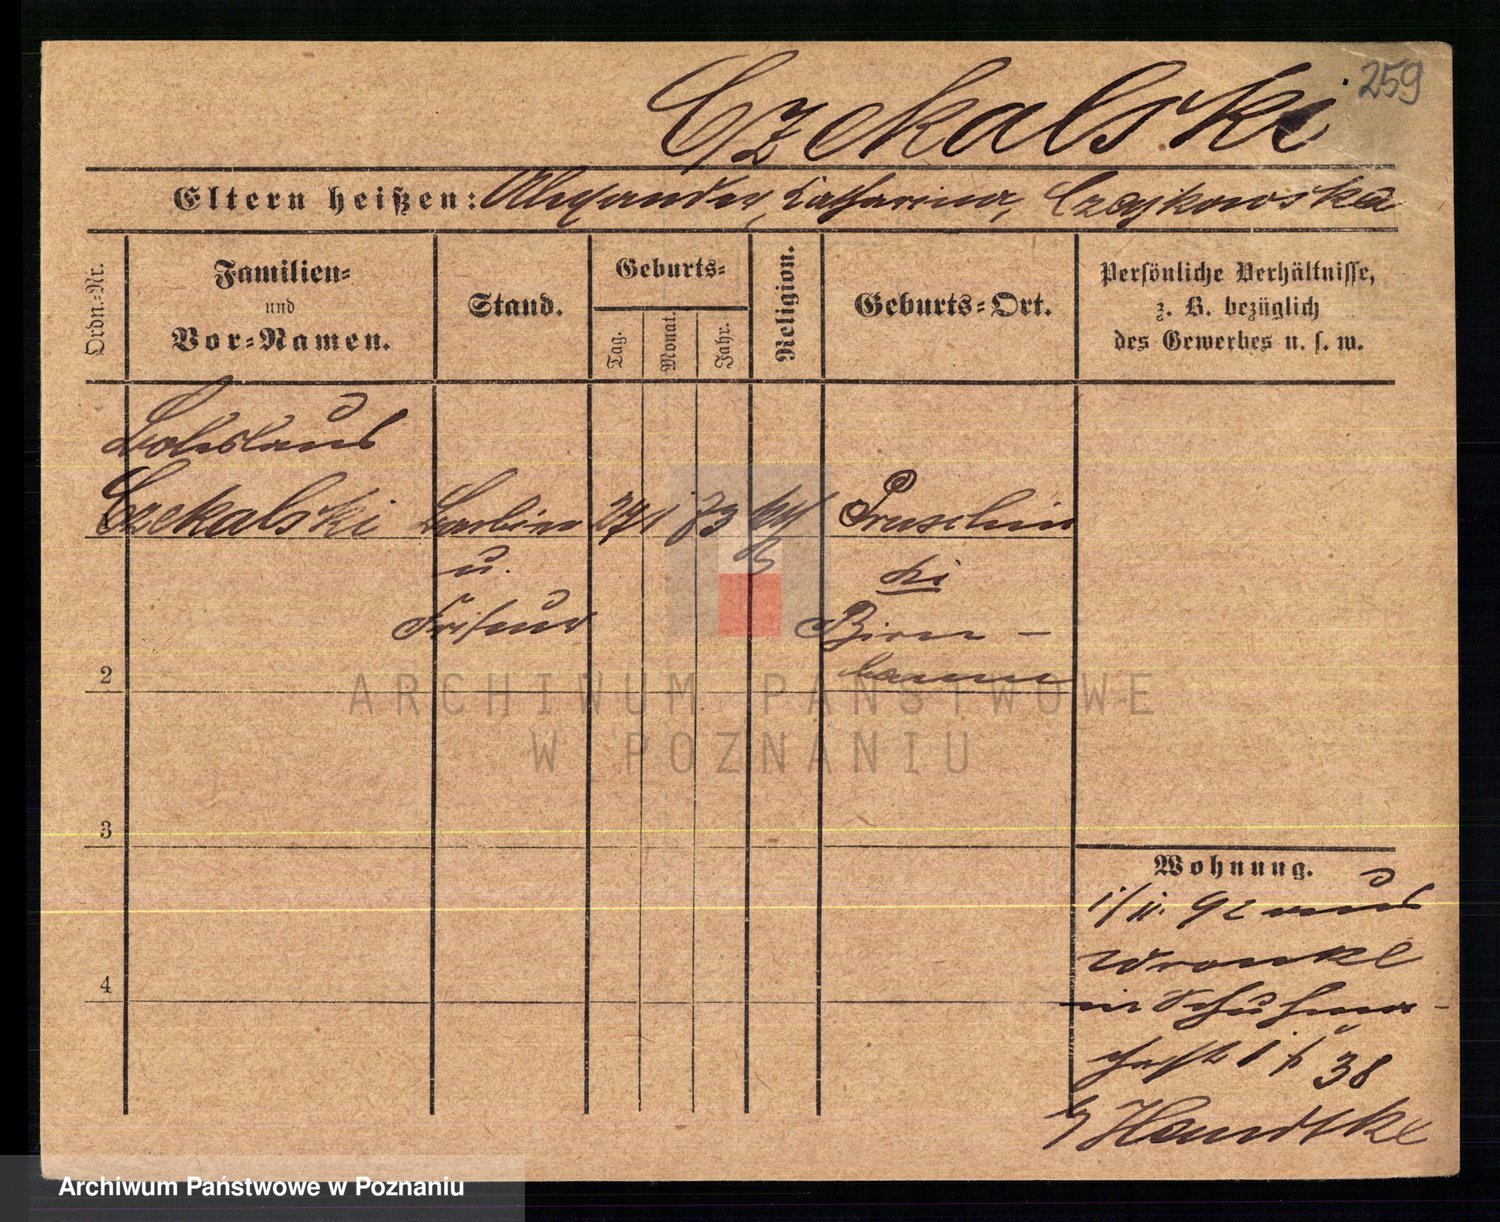 259
Czekalski
Eltern heißen: Alexander, Katharina, Czajkowska
Ordn.-Nr.
Familien-
und
Vor-Namen.
Stand.
Geburts-
Tag.
Monat.
Jahr.
Religion.
Geburts-Ort.
Persönliche Verhältnisse,
z. B. bezüglich
des Gewerbes u. s. w.
Boleslaus
Czekalski Barbier 27 1 73 kath
u.
Friseur
Birn-
baum
2
3
4
Wohnung.
1/11. 92 aus
Wronke
38
Handtke
ARCHIWUM PAŃSTWOWE
W POZNANIU
Archiwum Państwowe w Poznaniu